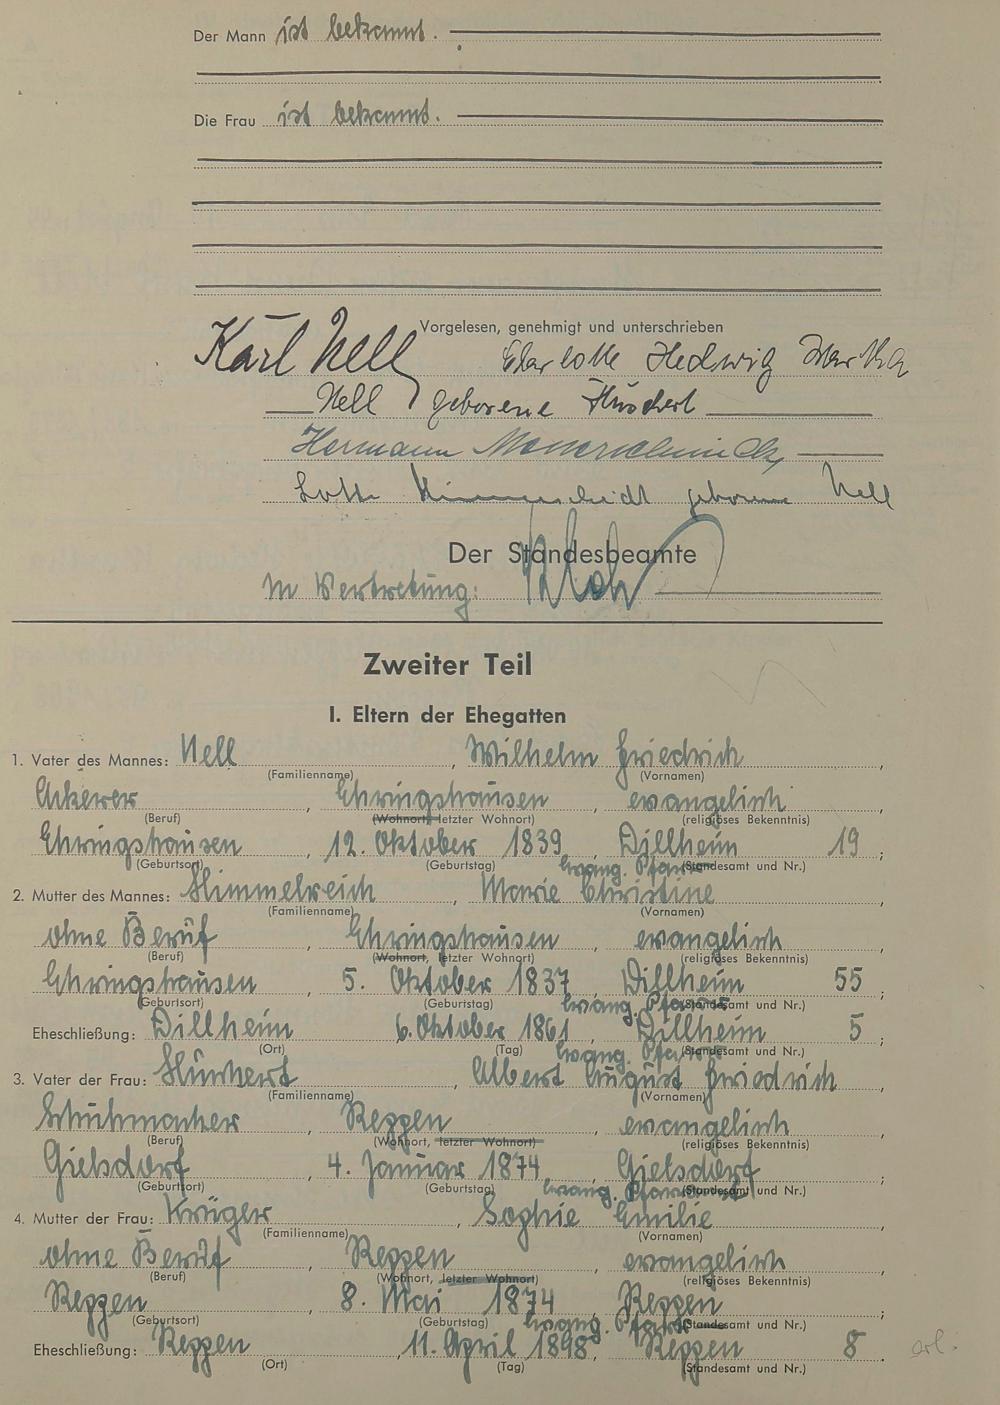 Der Mann ist bekannt.
Die Frau ist bekannt.
Vorgelesen, genehmigt und unterschrieben
Karl Nell Charlotte Hedwig Martha
Nell geborene
Hermann
Lotte geborene Nell
Der Standesbeamte
In Vertretung:
Zweiter Teil
I. Eltern der Ehegatten
1. Vater des Mannes: Nell, Wilhelm Friedrich,
(Familienname) (Vornamen)
Ackerer, Ehringshausen, evangelisch
(Beruf) (Wohnort, letzter Wohnort) (religiöses Bekenntnis)
Ehringshausen, 12. Oktober 1839 Dillheim 19;
(Geburtsort) (Geburtstag) (Standesamt und Nr.)
evang. Pfarramt
2. Mutter des Mannes: Himmelreich, Marie Christine,
(Familienname) (Vornamen)
ohne Beruf, Ehringshausen, evangelisch
(Beruf) (Wohnort, letzter Wohnort) (religiöses Bekenntnis)
Ehringshausen, 5. Oktober 1837, Dillheim 55;
(Geburtsort) (Geburtstag) (Standesamt und Nr.)
evang. Pfarramt
Eheschließung: Dillheim 6. Oktober 1861 Dillheim 5;
(Ort) (Tag) (Standesamt und Nr.)
evang. Pfarramt
3. Vater der Frau: Albert August Friedrich,
(Familienname) (Vornamen)
Schuhmacher, Reppen, evangelisch,
(Beruf) (Wohnort, letzter Wohnort) (religiöses Bekenntnis)
Gielsdorf, 4. Januar 1874, Gielsdorf;
(Geburtsort) (Geburtstag) (Standesamt und Nr.)
evang. Pfarramt
4. Mutter der Frau: Krüger, Sophie Emilie,
(Familienname) (Vornamen)
ohne Beruf, Reppen, evangelisch,
(Beruf) (Wohnort, letzter Wohnort) (religiöses Bekenntnis)
Reppen, 8. Mai 1874, Reppen;
(Geburtsort) (Geburtstag) (Standesamt und Nr.)
evang. Pfarramt
Eheschließung: Reppen, 11. April 1898, Reppen 8.
(Ort) (Tag) (Standesamt und Nr.)